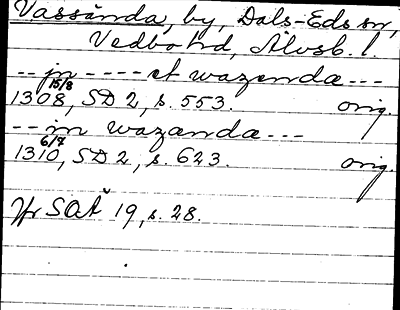 Vassända, by, Dals-Eds sn,
Vedbo hd, Älvsb. l.
-- in ---- et wazenda ---
15/8
1308, SD 2, s. 553. orig.
-- in wazanda ---
6/7
1310, SD 2, s. 623. orig.
Jfr SOÄ 19, s. 28.